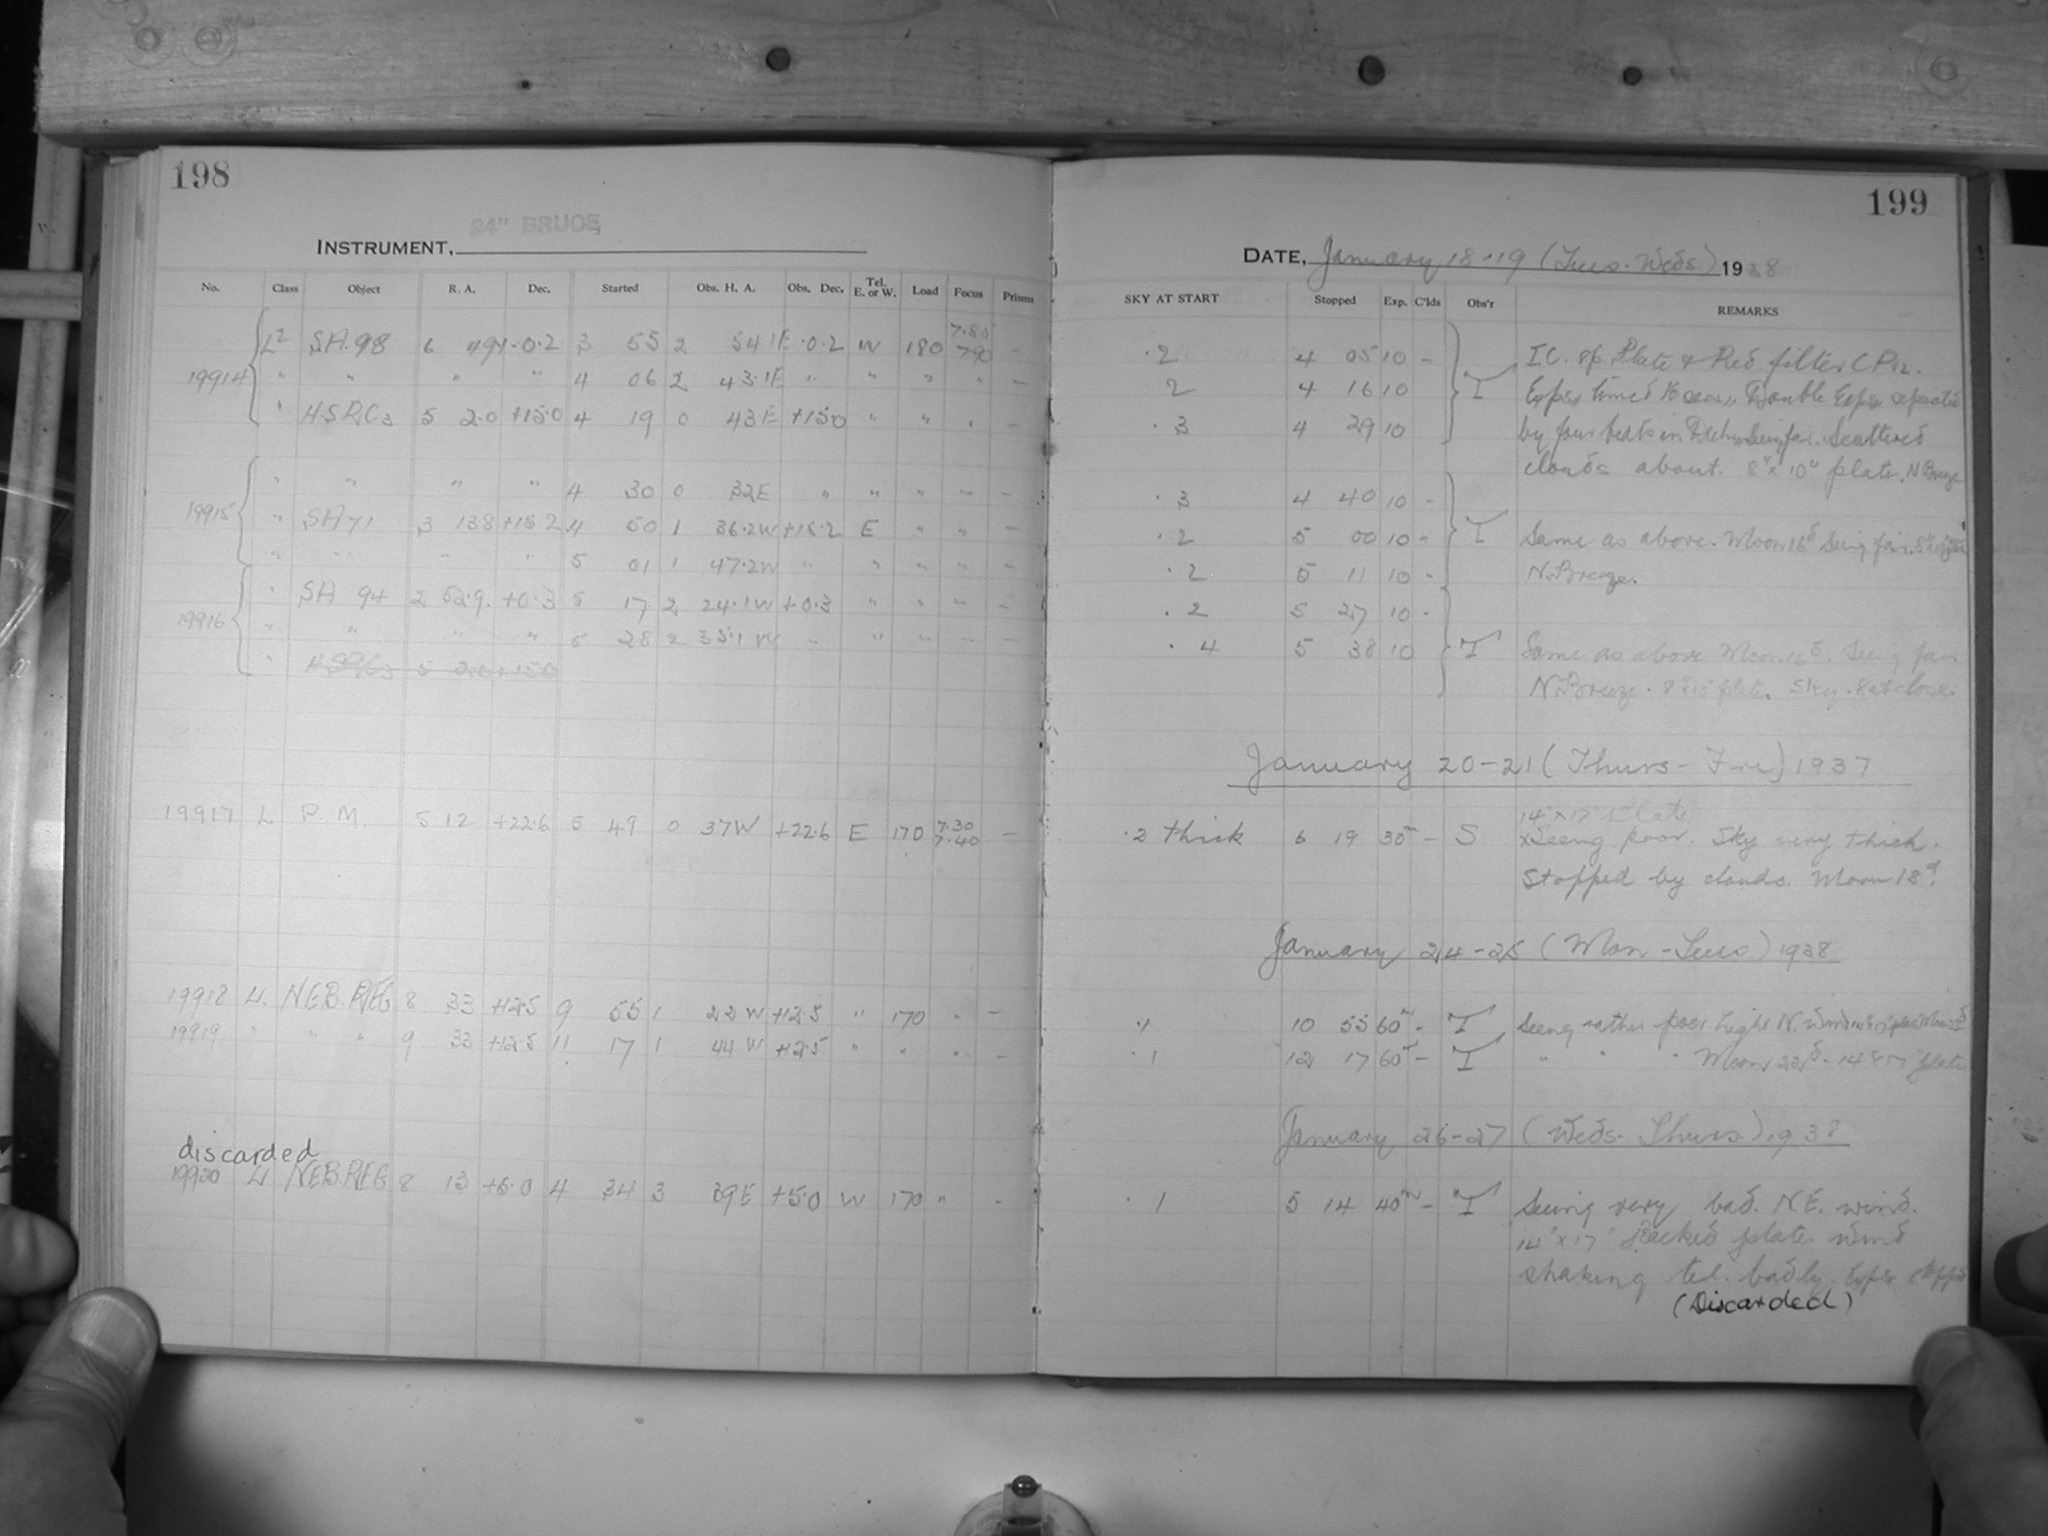 198
24" BRUCE
INSTRUMENT,
No. Class Object R. A. Dec. Started Obs. H. A. Obs. Dec. Tel. E. or W. Load Focus Prisms
7.85
L2 SA.98 6 49.1 -0.2 3 55 2 54.1E -0.2 W 180 7.90 -
19914 " " " " 4 06 2 43.1E " " " " -
" H.S.R.C3 5 2.0 +15.0 4 19 0 43E +15.0 " " " -
" " " " 4 30 0 32E " " " " -
19915 " SA71 3 13.8 +15.2 4 50 1 36.2W +15.2 E " " -
" " " " 5 01 1 47.2W " " " " -
" SA 94 2 52.9 +0.3 5 17 2 24.1W +0.3 " " " -
19916 " " " " 5 28 2 35.1W " " " " -
" H.S.R.C3 5 2.0 +15.0
19917 L P.M. 5 12 +22.6 5 49 0 37W +22.6 E 170 7.30 -
7.40
19918 L1 NEB.REG 8 33 +12.5 9 55 1 22W +12.5 " 170 " -
19919 " " " 9 33 +12.5 11 17 1 44W +12.5 " " " -
discarded
19920 L1 NEB.REG 8 13 +5.0 4 34 3 39E +5.0 W 170 " -
199
DATE, January 18-19 (Tues. Weds.) 1938
SKY AT START Stopped Exp. C'lds Obs'r REMARKS
.2 4 05 10 - I.C. sp. Plate & Red filter CP12.
2 4 16 10 T Exps. timed Double Exps. separated
.3 4 29 10 by four beats in Seeing fair. Scattered
clouds about. 8" x 10" plate. N Breeze
.3 4 40 10 -
.2 5 00 10 - T Same as above. Moon 16d Seeing fair. 8" x 10" plate
.2 5 11 10 - N. Breeze.
.2 5 27 10 -
.4 5 38 10 T Same as above Moon 16d. Seeing fair
N. Breeze. 8" x 10" plate. Sky .8 at close
January 20-21 (Thurs-Fri) 1937
14" x 17" Plate
.2 thick 6 19 30m - S Seeing poor. Sky very thick.
Stopped by clouds. Moon 18d.
January 24-25 (Mon-Tues) 1938
.1 10 55 60m - T Seeing rather poor Light N. Wind 14" x 17" plate Moon
.1 12 17 60m - T " " " Moon 22d. 14" x 17" plate
January 26-27 (Weds-Thurs.) 1938
.1 5 14 40m - T Seeing very bad. N.E. wind.
14" x 17" Backed plate. Wind
shaking tel. badly. Exps. stopped
(Discarded)